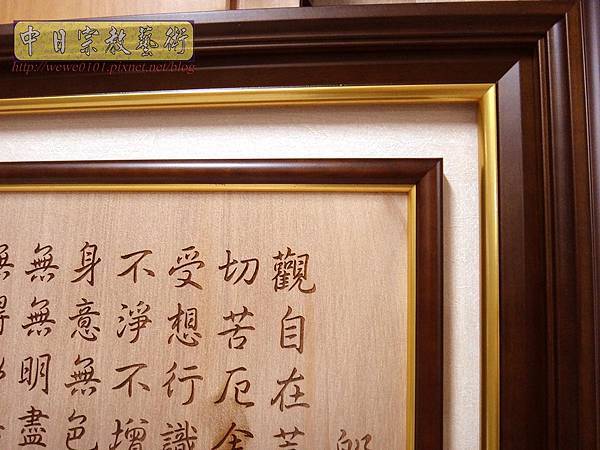 中日宗教藝術
http://wewe0101.pixnet.net/blog
觀自在
切苦厄
受想行識
不淨不增
身意無色
無無明盡